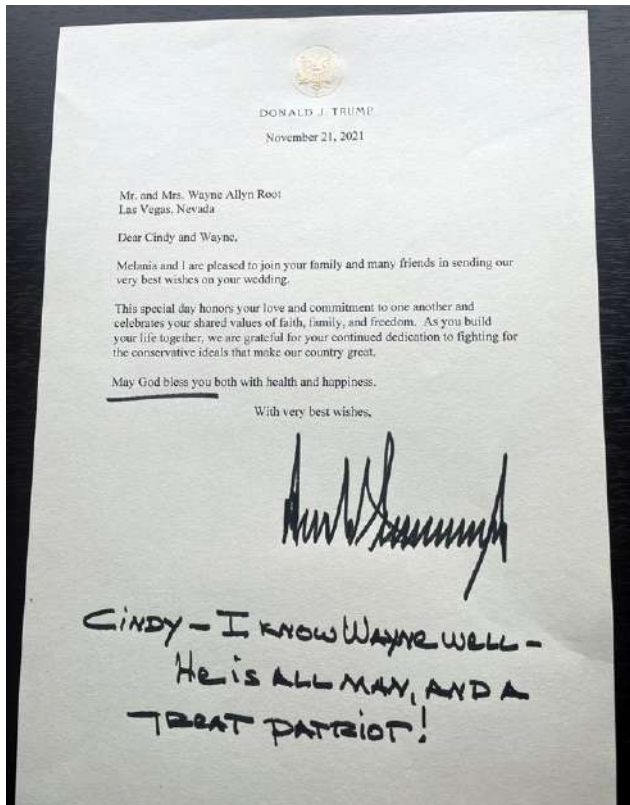 DONALD J. TRUMP
November 21, 2021
Mr. and Mrs. Wayne Allyn Root
Las Vegas, Nevada
Dear Cindy and Wayne,
Melania and I are pleased to join your family and many friends in sending our
very best wishes on your wedding.
This special day honors your love and commitment to one another and
celebrates your shared values of faith, family, and freedom. As you build
your life together, we are grateful for your continued dedication to fighting for
the conservative ideals that make our country great.
May God bless you both with health and happiness.
With very best wishes,
CINDY - I KNOW WAYNE WELL -
He is ALL MAN, AND A
TREAT PATRIOT!